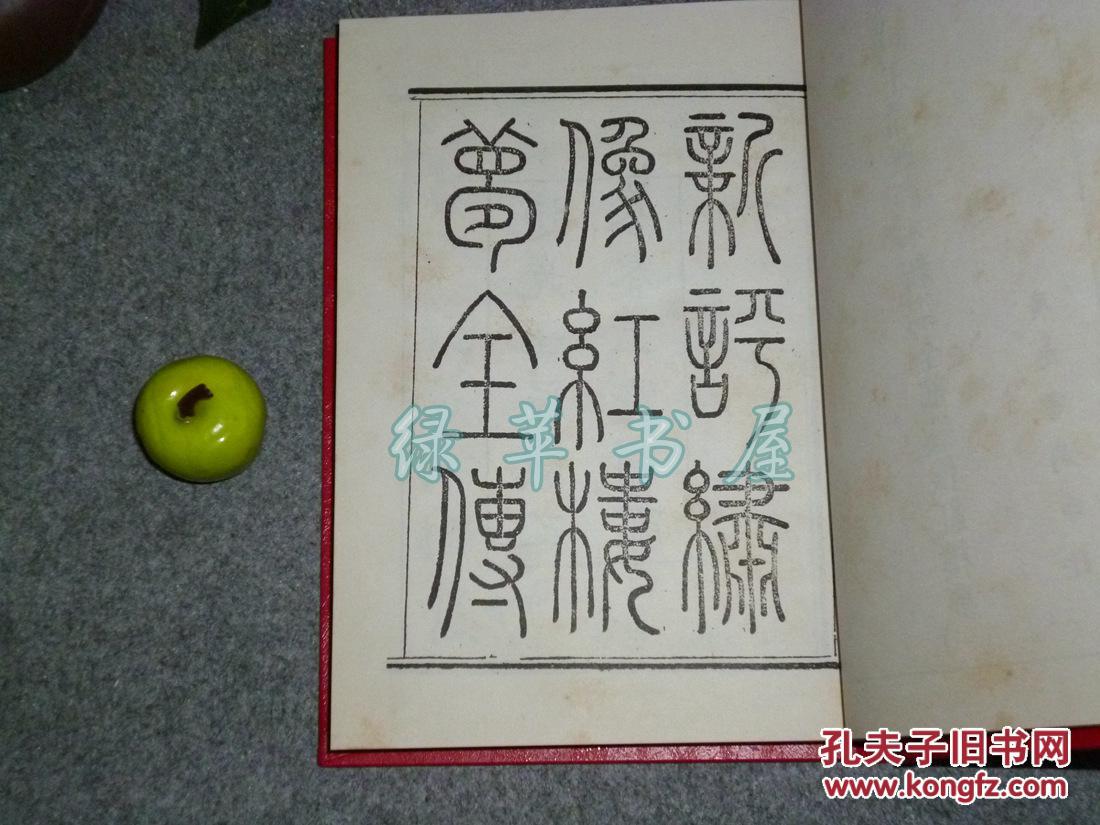 新評繡
像紅樓
夢全傳
绿苹书屋
孔夫子旧书网
www.kongfz.com